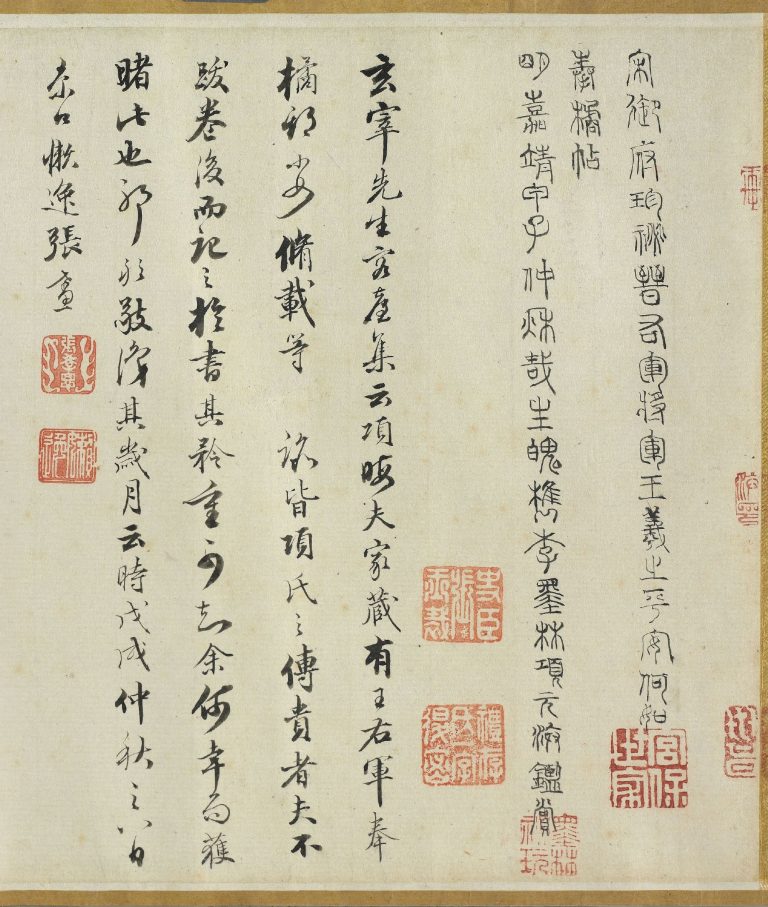 宋御府珍祕晉右軍將軍王羲之平安何如
奉橘帖
明嘉靖甲子仲秋哉生魄檇李墨林項元汴鑑賞
玄宰先生容臺集云項晦夫家藏有王右軍奉
橘 脩載等 皆項氏之傳貴者夫不
跋卷後而記之於書其矜重可知余何幸而獲
睹此也耶 敬識其歲月云時戊戌仲秋之八日
京口懶逸張
宮保世家
墨林祕玩
張孝思
懶逸